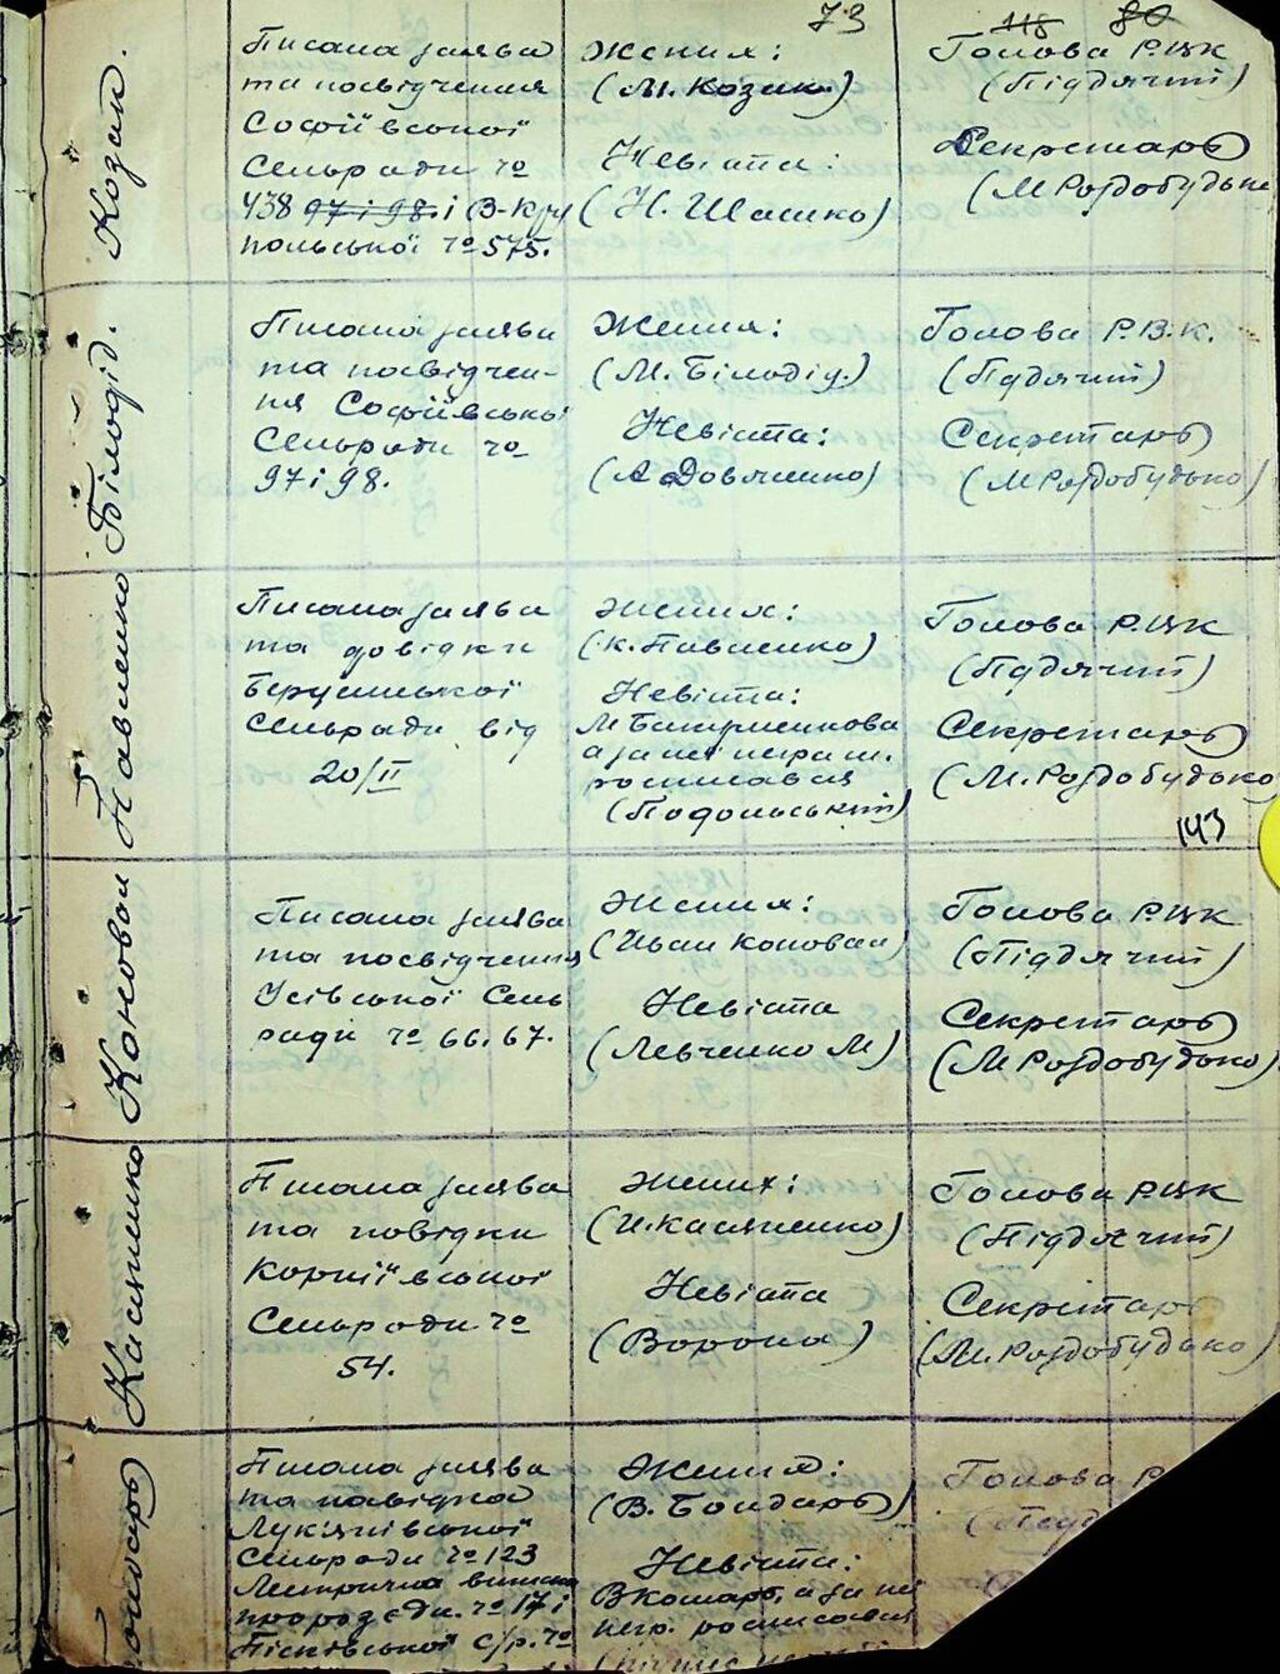 73
118 80
Козак.
Писана заява
та посвідчення
Софіївської
Сельради №
438 97 і 98. і В-Кру
польської № 575.
Жених:
(М. Козак)
Невіста:
(Н. Шашко)
Голова РВК
(Підячий)
Секретарь
(М Роздобудько
Білодід.
Писана заява
та посвідчен-
ня Софіївської
Сельради №
97 і 98.
Жених:
(М. Білодід.)
Невіста:
(А Довяченко)
Голова Р.В.К.
(Підячий)
Секретарь
(М Роздобудько)
Павленко
Писана заява
та довідки
Сельради від
20/II
Жених:
(К. Павленко)
Невіста:
М
а за неї неграм.
росписався
(Подольський)
Голова РВК
(Підячий)
Секретарь
(М. Роздобудько
143
Коновал
Писана заява
та посвідчення
Усівської Сель
ради № 66. 67.
Жених:
(Иван Коновал)
Невіста
(Левченко М)
Голова РВК
(Підячий)
Секретарь
(М Роздобудько)
Касяненко
Писана заява
та повідки
Корніївської
Сельради №
54.
Жених:
(И. Касяненко)
Невіста
(Ворона)
Голова РВК
(Підячий)
Секретарь
(М. Роздобудько)
Писана заява
та повідка
Лукяпівської
Сельради № 123
Метрична виписка
про розєдн. № 17 і
Пісківської с/р. №
Жених:
(В. Бондарь)
Невіста:
В Комарь, а за неї
негр. росписався
Голова Р